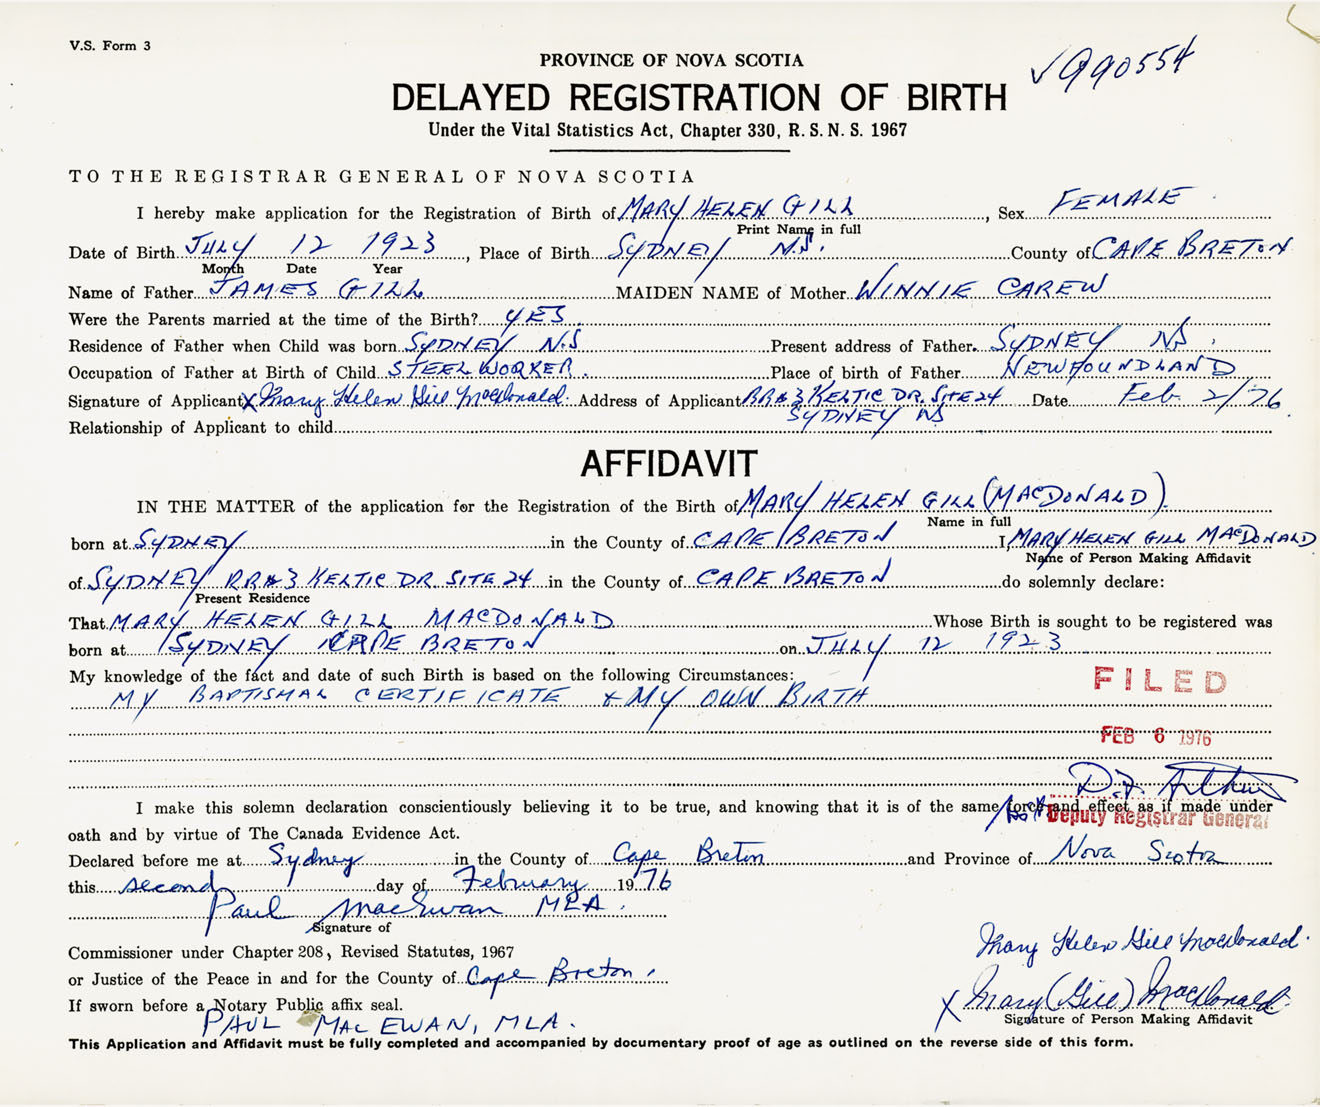 V.S. Form 3
PROVINCE OF NOVA SCOTIA
√990554
DELAYED REGISTRATION OF BIRTH
Under the Vital Statistics Act, Chapter 330, R.S.N.S. 1967
TO THE REGISTRAR GENERAL OF NOVA SCOTIA
I hereby make application for the Registration of Birth of MARY HELEN GILL, Sex FEMALE
Print Name in full
Date of Birth JULY 12 1923, Place of Birth SYDNEY N.S. County of CAPE BRETON
Month Date Year
Name of Father JAMES GILL MAIDEN NAME of Mother WINNIE CAREW
Were the Parents married at the time of the Birth? YES
Residence of Father when Child was born SYDNEY N.S Present address of Father SYDNEY NS.
Occupation of Father at Birth of Child STEEL WORKER. Place of birth of Father NEWFOUNDLAND
Signature of Applicant X Mary Helen Gill MacDonald. Address of Applicant RR#3 KELTIC DR. SITE 24 Date Feb. 2/76
SYDNEY NS
Relationship of Applicant to child
AFFIDAVIT
IN THE MATTER of the application for the Registration of the Birth of MARY HELEN GILL (MACDONALD).
Name in full
born at SYDNEY in the County of CAPE BRETON I, MARY HELEN GILL MACDONALD
Name of Person Making Affidavit
of SYDNEY RR#3 KELTIC DR. SITE 24 in the County of CAPE BRETON do solemnly declare:
Present Residence
That MARY HELEN GILL MACDONALD Whose Birth is sought to be registered was
born at SYDNEY CAPE BRETON on JULY 12 1923
My knowledge of the fact and date of such Birth is based on the following Circumstances:
MY BAPTISMAL CERTIFICATE & MY OWN BIRTH
FILED
FEB 6 1976
D.F. Arthur
I make this solemn declaration conscientiously believing it to be true, and knowing that it is of the same force and effect as if made under
Deputy Registrar General
oath and by virtue of The Canada Evidence Act.
Declared before me at Sydney in the County of Cape Breton and Province of Nova Scotia
this second day of February 1976
Paul MacEwan MLA.
Signature of
Commissioner under Chapter 208, Revised Statutes, 1967
Mary Helen Gill MacDonald.
or Justice of the Peace in and for the County of Cape Breton.
X Mary (Gill) MacDonald.
If sworn before a Notary Public affix seal.
Signature of Person Making Affidavit
PAUL MACEWAN, MLA.
This Application and Affidavit must be fully completed and accompanied by documentary proof of age as outlined on the reverse side of this form.